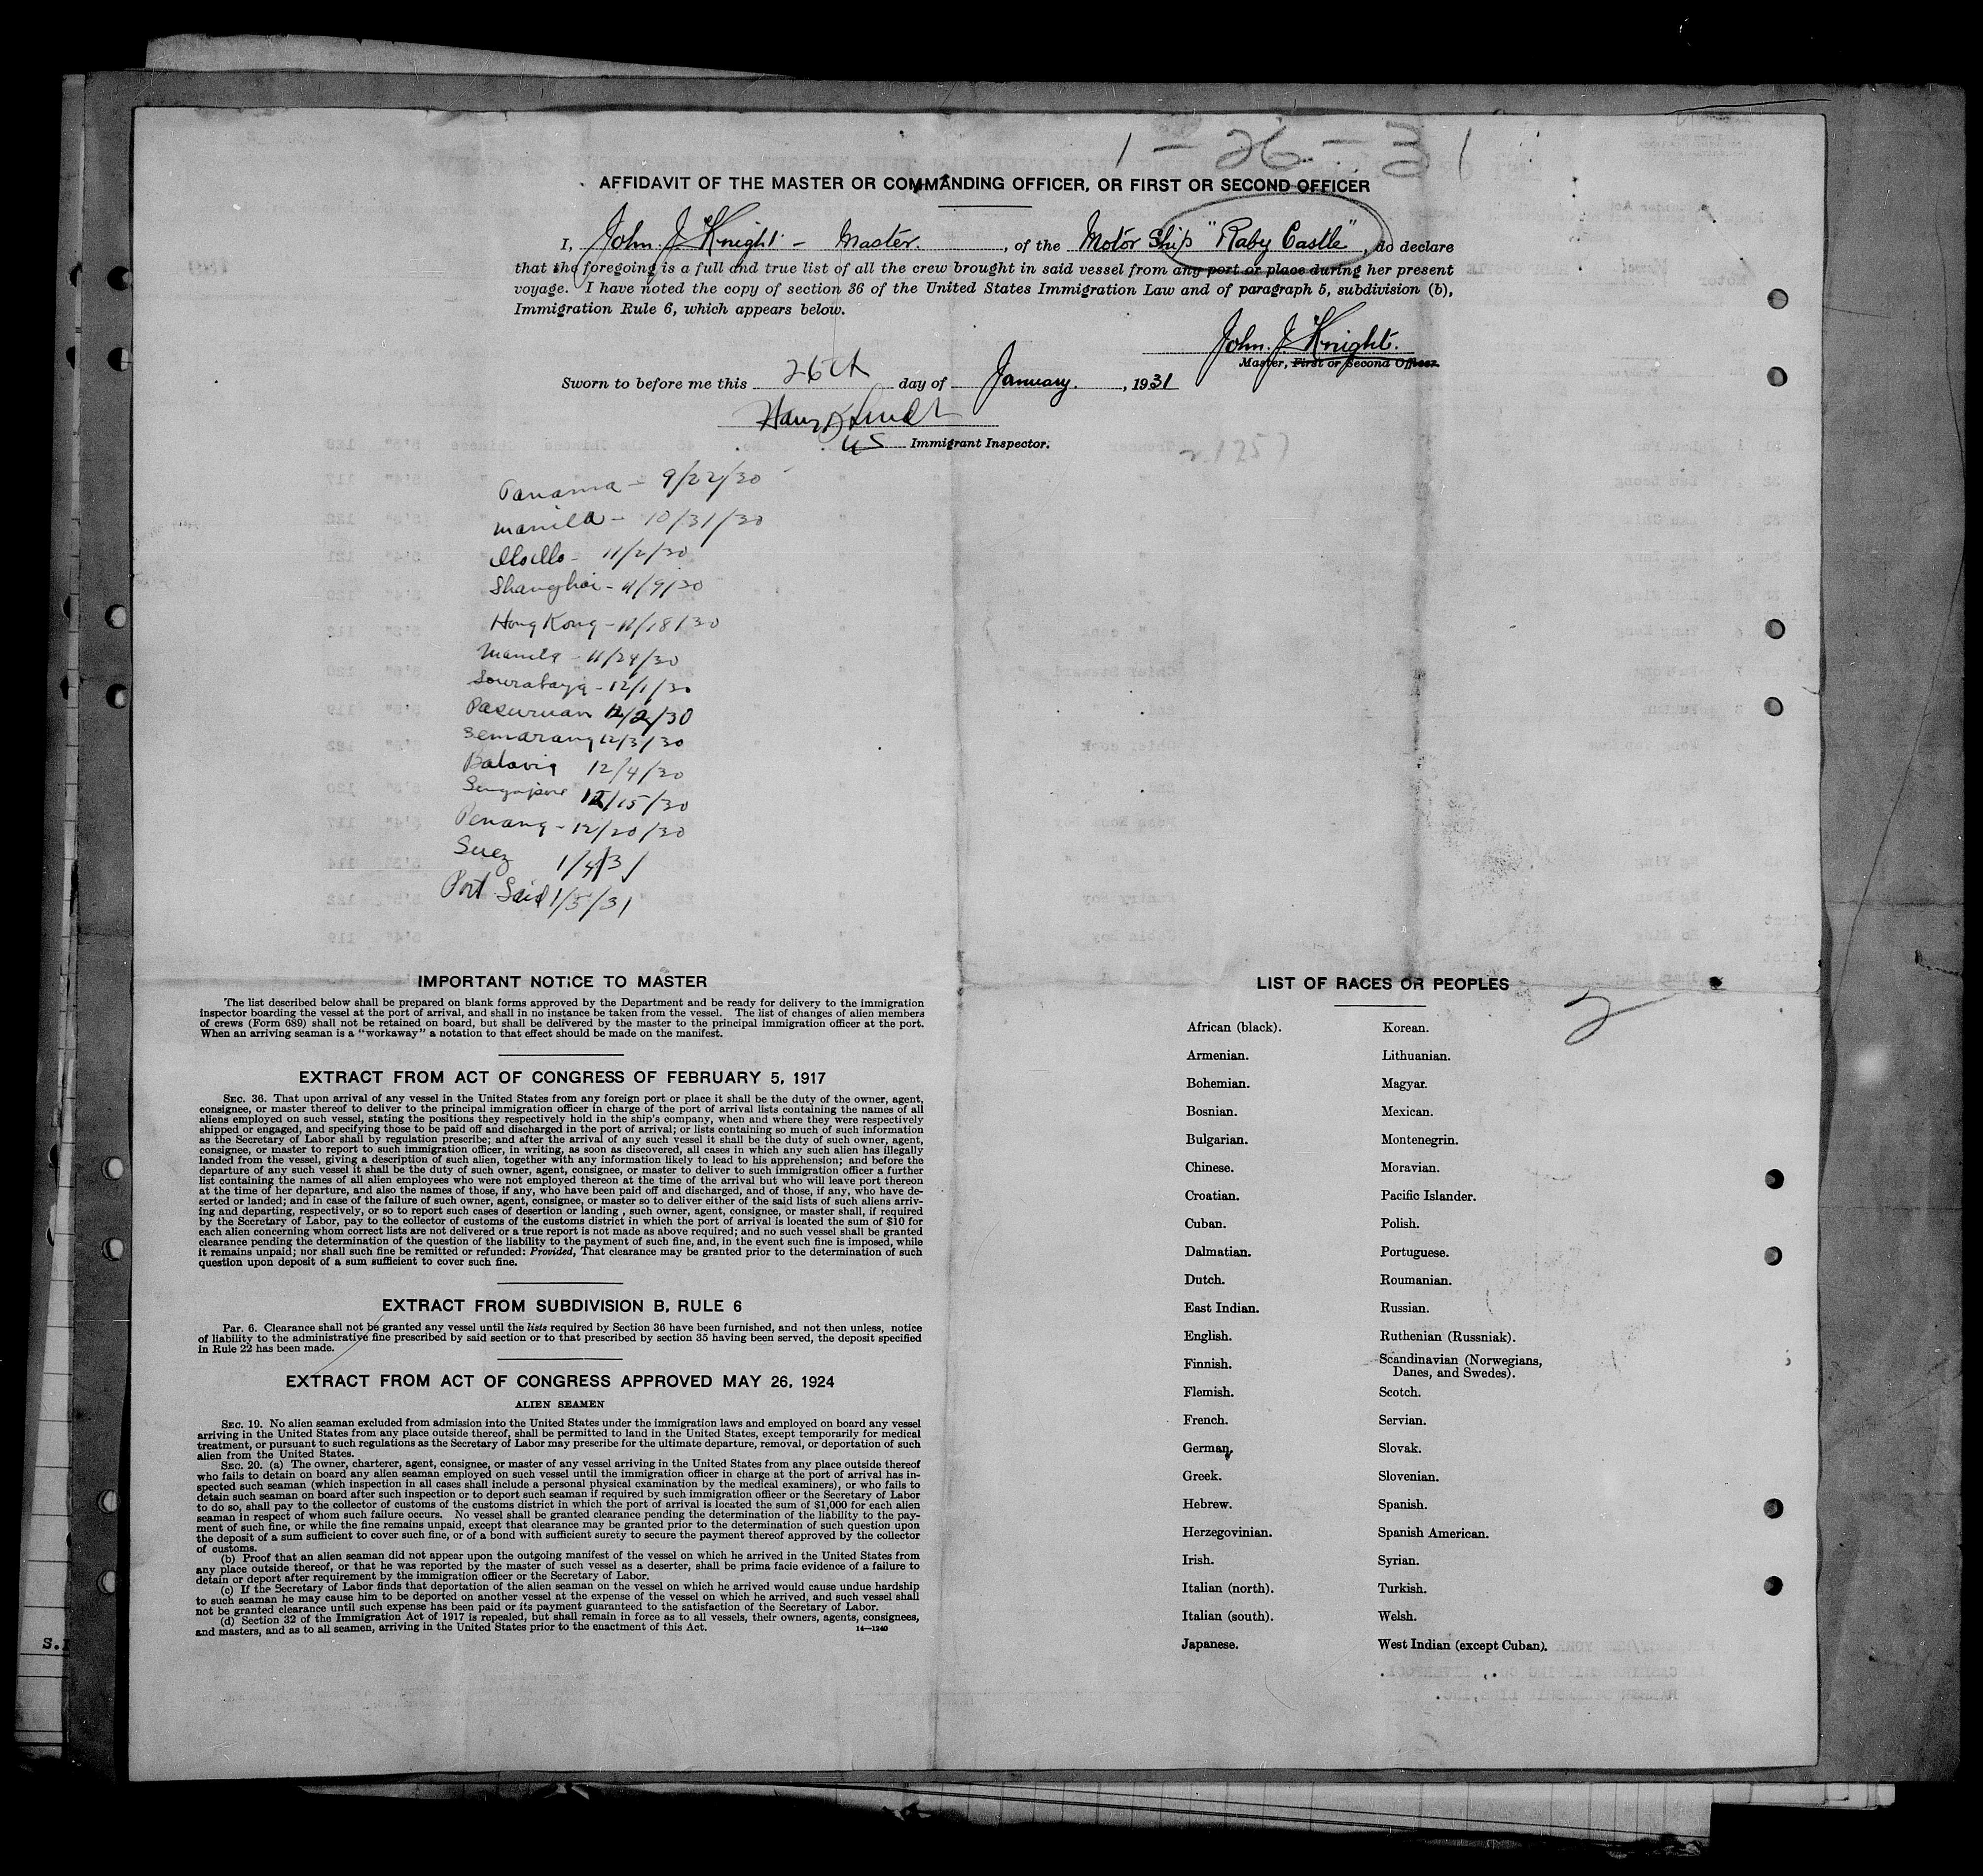 1-26-31
AFFIDAVIT OF THE MASTER OR COMMANDING OFFICER, OR FIRST OR SECOND OFFICER
I, John. J. Knight - Master. , of the Motor Ship "Raby Castle", do declare
that the foregoing is a full and true list of all the crew brought in said vessel from any port or place during her present
voyage. I have noted the copy of section 36 of the United States Immigration Law and of paragraph 5, subdivision (b),
Immigration Rule 6, which appears below.
John. J. Knight.
Master, First or Second Officer.
Sworn to before me this 26th day of January. , 1931
US Immigrant Inspector.
Panama - 9/22/30
Manila - 10/31/30
Iloilo - 11/2/30
Shanghai - 11/9/30
Hong Kong - 11/18/30
Manila - 11/24/30
Sourabaya - 12/1/30
Pasuruan 12/2/30
Semarang 12/3/30
Batavia 12/4/30
Singapore 12/15/30
Penang - 12/20/30
Suez 1/4/31
Port Said 1/5/31
IMPORTANT NOTICE TO MASTER
The list described below shall be prepared on blank forms approved by the Department and be ready for delivery to the immigration
inspector boarding the vessel at the port of arrival, and shall in no instance be taken from the vessel. The list of changes of alien members
of crews (Form 689) shall not be retained on board, but shall be delivered by the master to the principal immigration officer at the port.
When an arriving seaman is a "workaway" a notation to that effect should be made on the manifest.
EXTRACT FROM ACT OF CONGRESS OF FEBRUARY 5, 1917
SEC. 36. That upon arrival of any vessel in the United States from any foreign port or place it shall be the duty of the owner, agent,
consignee, or master thereof to deliver to the principal immigration officer in charge of the port of arrival lists containing the names of all
aliens employed on such vessel, stating the positions they respectively hold in the ship's company, when and where they were respectively
shipped or engaged, and specifying those to be paid off and discharged in the port of arrival; or lists containing so much of such information
as the Secretary of Labor shall by regulation prescribe; and after the arrival of any such vessel it shall be the duty of such owner, agent,
consignee, or master to report to such immigration officer, in writing, as soon as discovered, all cases in which any such alien has illegally
landed from the vessel, giving a description of such alien, together with any information likely to lead to his apprehension; and before the
departure of any such vessel it shall be the duty of such owner, agent, consignee, or master to deliver to such immigration officer a further
list containing the names of all alien employees who were not employed thereon at the time of the arrival but who will leave port thereon
at the time of her departure, and also the names of those, if any, who have been paid off and discharged, and of those, if any, who have de-
serted or landed; and in case of the failure of such owner, agent, consignee, or master so to deliver either of the said lists of such aliens arriv-
ing and departing, respectively, or so to report such cases of desertion or landing , such owner, agent, consignee, or master shall, if required
by the Secretary of Labor, pay to the collector of customs of the customs district in which the port of arrival is located the sum of $10 for
each alien concerning whom correct lists are not delivered or a true report is not made as above required; and no such vessel shall be granted
clearance pending the determination of the question of the liability to the payment of such fine, and, in the event such fine is imposed, while
it remains unpaid; nor shall such fine be remitted or refunded: Provided, That clearance may be granted prior to the determination of such
question upon deposit of a sum sufficient to cover such fine.
EXTRACT FROM SUBDIVISION B, RULE 6
Par. 6. Clearance shall not be granted any vessel until the lists required by Section 36 have been furnished, and not then unless, notice
of liability to the administrative fine prescribed by said section or to that prescribed by section 35 having been served, the deposit specified
in Rule 22 has been made.
EXTRACT FROM ACT OF CONGRESS APPROVED MAY 26, 1924
ALIEN SEAMEN
SEC. 19. No alien seaman excluded from admission into the United States under the immigration laws and employed on board any vessel
arriving in the United States from any place outside thereof, shall be permitted to land in the United States, except temporarily for medical
treatment, or pursuant to such regulations as the Secretary of Labor may prescribe for the ultimate departure, removal, or deportation of such
alien from the United States.
SEC. 20. (a) The owner, charterer, agent, consignee, or master of any vessel arriving in the United States from any place outside thereof
who fails to detain on board any alien seaman employed on such vessel until the immigration officer in charge at the port of arrival has in-
spected such seaman (which inspection in all cases shall include a personal physical examination by the medical examiners), or who fails to
detain such seaman on board after such inspection or to deport such seaman if required by such immigration officer or the Secretary of Labor
to do so, shall pay to the collector of customs of the customs district in which the port of arrival is located the sum of $1,000 for each alien
seaman in respect of whom such failure occurs. No vessel shall be granted clearance pending the determination of the liability to the pay-
ment of such fine, or while the fine remains unpaid, except that clearance may be granted prior to the determination of such question upon
the deposit of a sum sufficient to cover such fine, or of a bond with sufficient surety to secure the payment thereof approved by the collector
of customs.
(b) Proof that an alien seaman did not appear upon the outgoing manifest of the vessel on which he arrived in the United States from
any place outside thereof, or that he was reported by the master of such vessel as a deserter, shall be prima facie evidence of a failure to
detain or deport after requirement by the immigration officer or the Secretary of Labor.
(c) If the Secretary of Labor finds that deportation of the alien seaman on the vessel on which he arrived would cause undue hardship
to such seaman he may cause him to be deported on another vessel at the expense of the vessel on which he arrived, and such vessel shall
not be granted clearance until such expense has been paid or its payment guaranteed to the satisfaction of the Secretary of Labor.
(d) Section 32 of the Immigration Act of 1917 is repealed, but shall remain in force as to all vessels, their owners, agents, consignees,
and masters, and as to all seamen, arriving in the United States prior to the enactment of this Act. 14—1240
LIST OF RACES OR PEOPLES
2
African (black). Korean.
Armenian. Lithuanian.
Bohemian. Magyar.
Bosnian. Mexican.
Bulgarian. Montenegrin.
Chinese. Moravian.
Croatian. Pacific Islander.
Cuban. Polish.
Dalmatian. Portuguese.
Dutch. Roumanian.
East Indian. Russian.
English. Ruthenian (Russniak).
Finnish. Scandinavian (Norwegians,
Danes, and Swedes).
Flemish. Scotch.
French. Servian.
German. Slovak.
Greek. Slovenian.
Hebrew. Spanish.
Herzegovinian. Spanish American.
Irish. Syrian.
Italian (north). Turkish.
Italian (south). Welsh.
Japanese. West Indian (except Cuban).